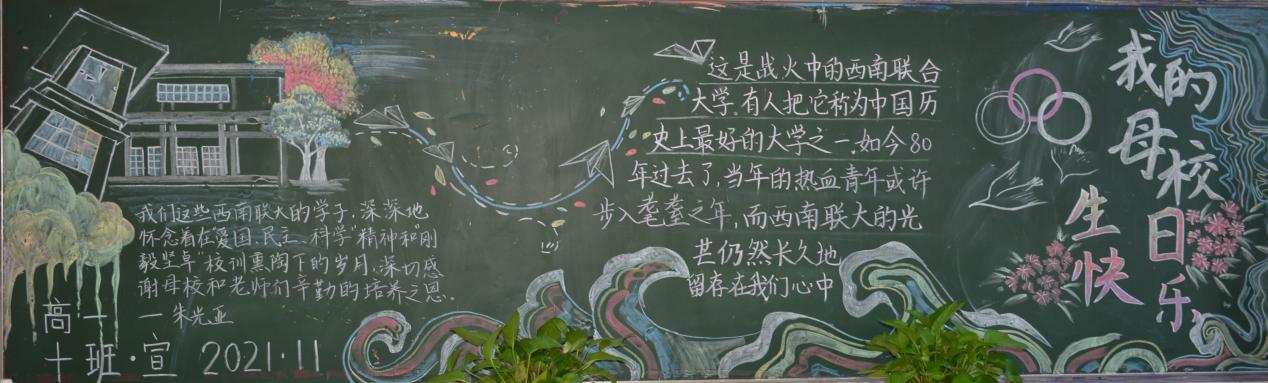 我们这些西南联大的学子，深深地
怀念着在“爱国、民主、科学”精神和“刚
毅坚卓”校训熏陶下的岁月，深切感
谢母校和老师们辛勤的培养之恩。
— 朱光亚
高一
十班·宣 2021·11
这是战火中的西南联合
大学，有人把它称为中国历
史上最好的大学之一，如今80
年过去了，当年的热血青年或许
步入耄耋之年，而西南联大的光
芒仍然长久地
留存在我们心中
我的
母校
生日
快乐